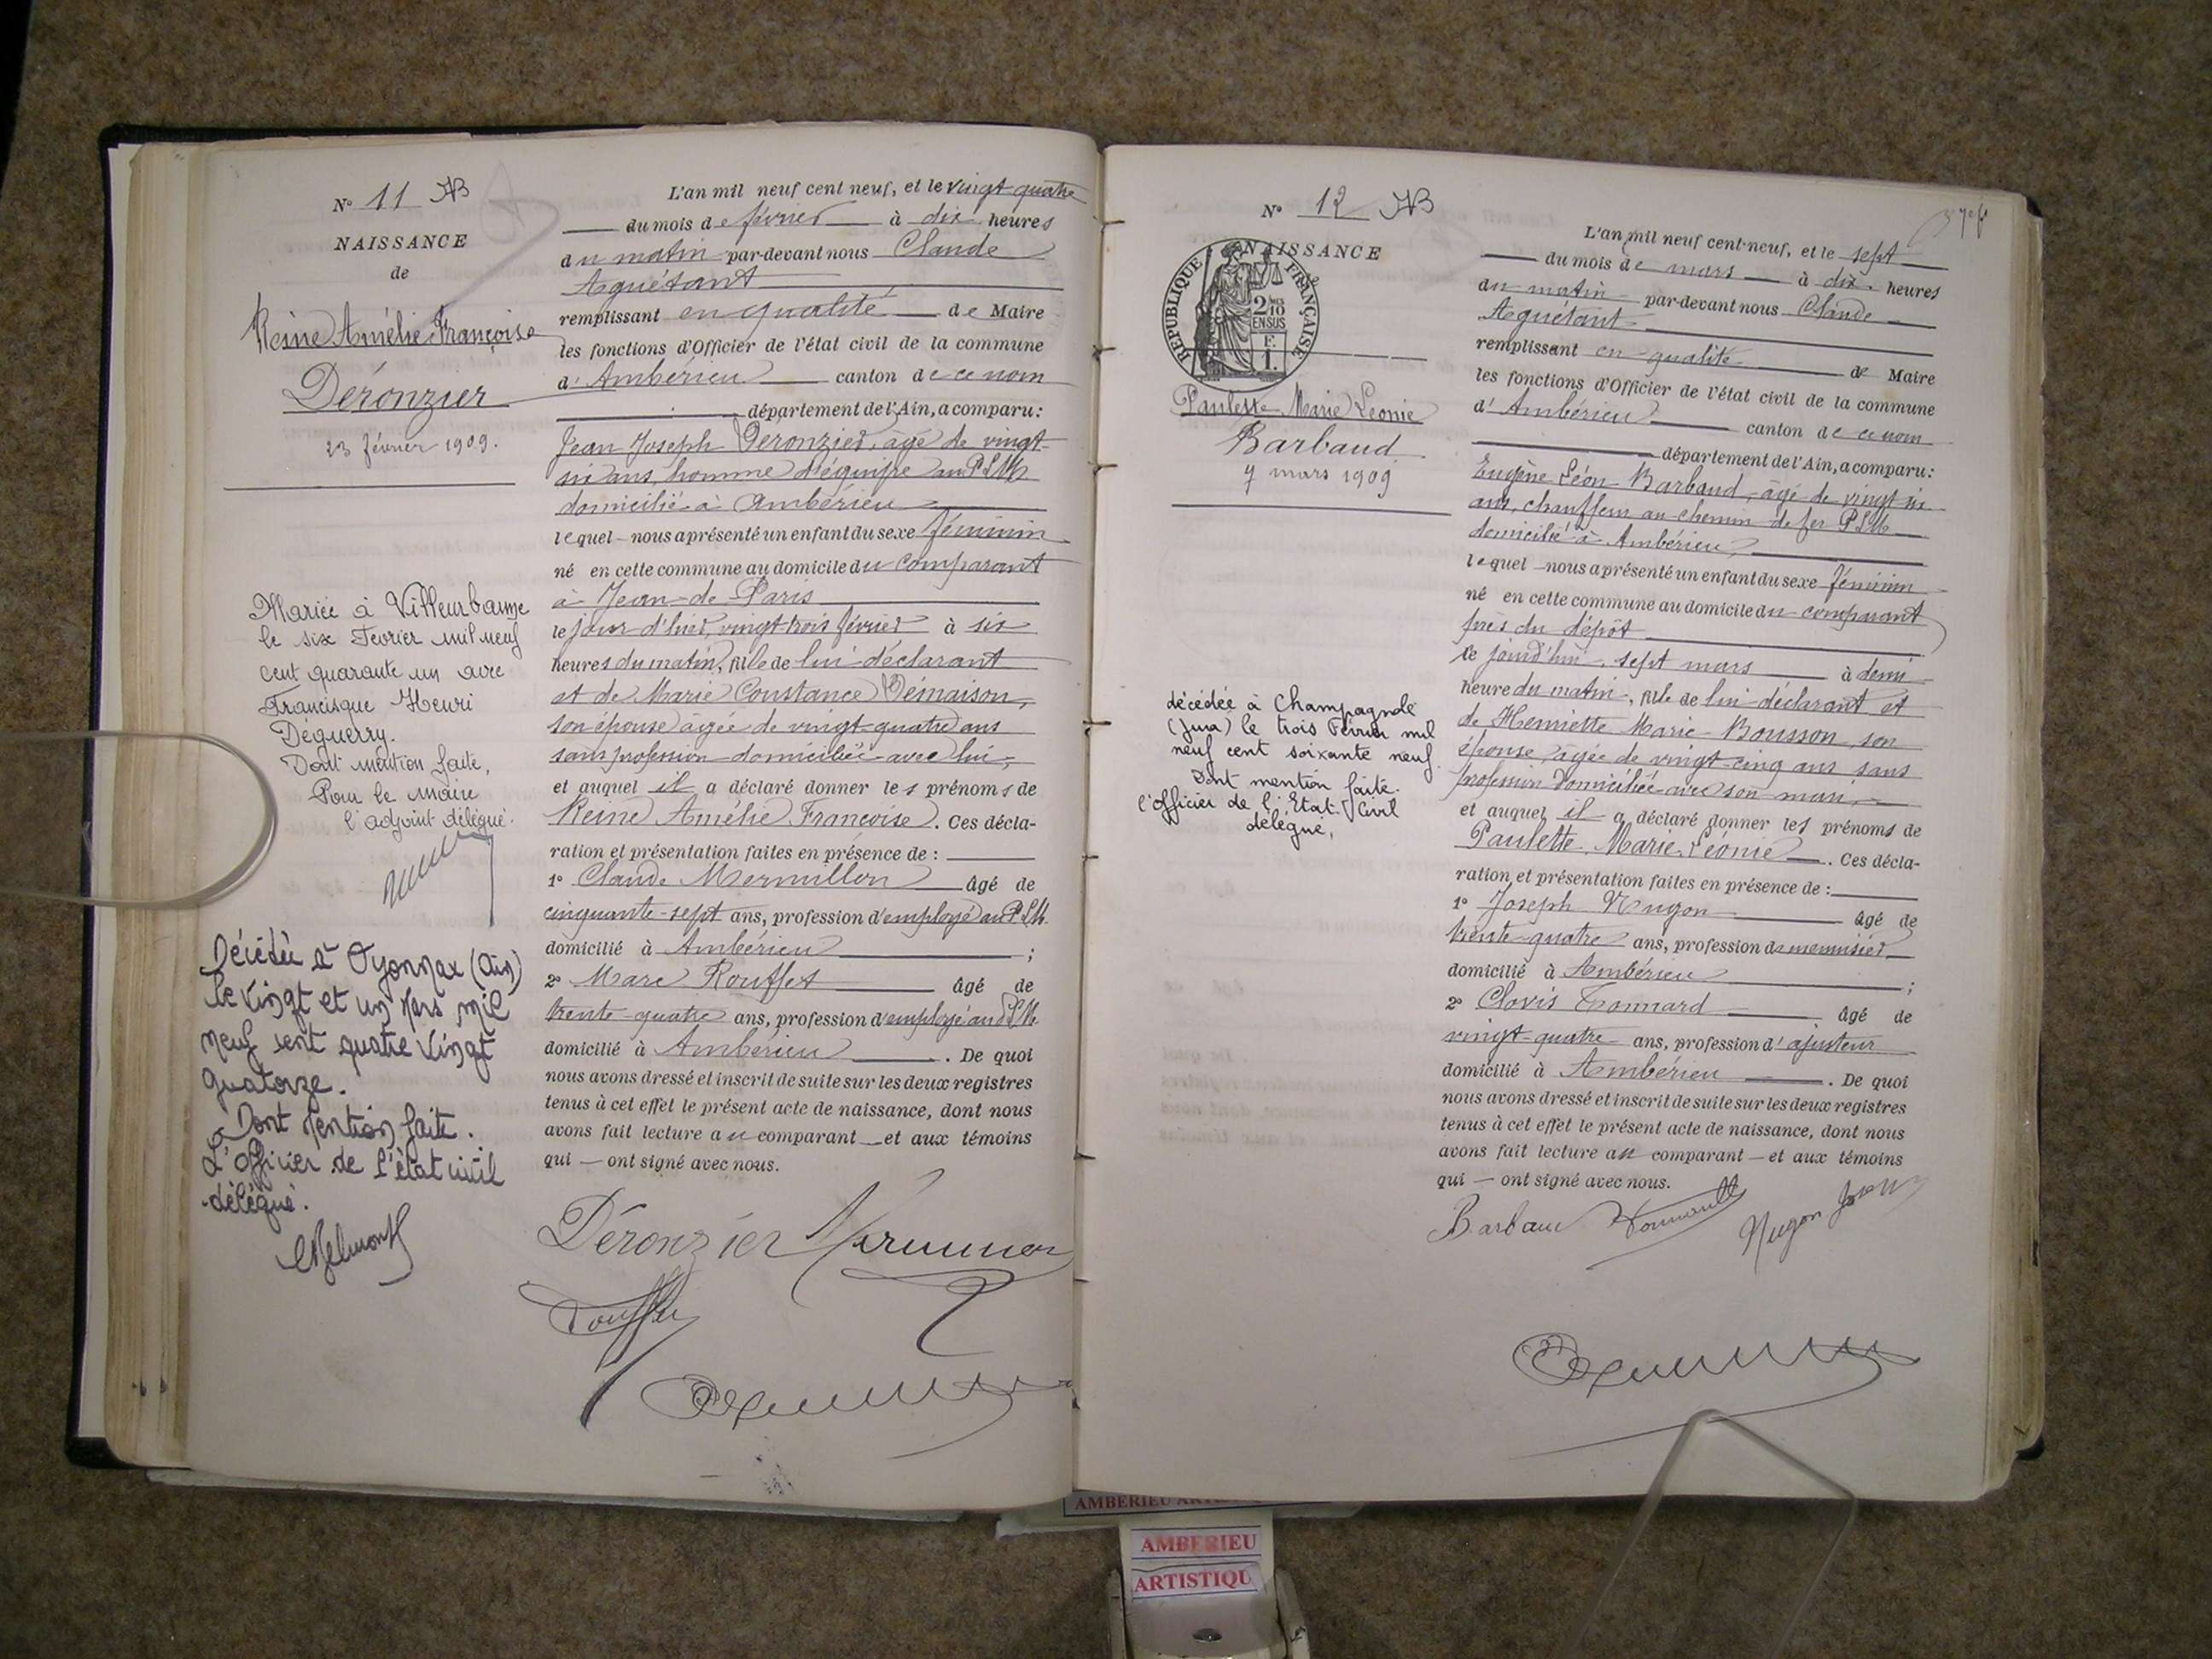 N° 11 AB
NAISSANCE
de
Reine Amélie Françoise
Déronzier
23 février 1909.
Mariée à Villeurbanne
le six Fevrier mil neuf
cent quarante un avec
Francisque Henri
Déguerry.
Dont mention faite,
Pour le maire
l'adjoint délégué.
Décédée à Oyonnax (Ain)
le vingt et un Mars mil
neuf cent quatre vingt
quatorze.
Dont Mention faite.
L'officier de l'état civil
délégué.
L'an mil neuf cent neuf, et le vingt quatre
du mois de février à dix heures
du matin par-devant nous Claude
Aguétant
remplissant en qualité de Maire
les fonctions d'Officier de l'état civil de la commune
d'Ambérieu canton de ce nom
département de l'Ain, a comparu :
Jean Joseph Déronzier, âgé de vingt
six ans, homme d'équipe au P.L.M.
domicilié à Ambérieu
lequel nous a présenté un enfant du sexe féminin
né en cette commune au domicile du comparant
à Jean-de-Paris
le jour d'hier, vingt-trois février à six
heures du matin, fille de lui déclarant
et de Marie Constance Démaison,
son épouse âgée de vingt-quatre ans
sans profession domiciliée avec lui,
et auquel il a déclaré donner les prénoms de
Reine Amélie Françoise. Ces décla-
ration et présentation faites en présence de :
1° Claude Mermillon âgé de
cinquante-sept ans, profession d'employé au P.L.M.
domicilié à Ambérieu ;
2° Marc Rouffet âgé de
trente-quatre ans, profession d'employé au P.L.M.
domicilié à Ambérieu . De quoi
nous avons dressé et inscrit de suite sur les deux registres
tenus à cet effet le présent acte de naissance, dont nous
avons fait lecture au comparant et aux témoins
qui — ont signé avec nous.
Déronzier
N° 12 AB
NAISSANCE
REPUBLIQUE FRANÇAISE
2/10
EN SUS
F.
1.
Paulette Marie Léonie
Barbaud
7 mars 1909
décédée à Champagnole
(Jura) le trois Février mil
neuf cent soixante neuf.
Dont mention faite.
l'officier de l'Etat Civil
délégué,
L'an mil neuf cent neuf, et le sept
du mois de mars à dix heures
du matin par-devant nous Claude
Aguétant
remplissant en qualité de Maire
les fonctions d'Officier de l'état civil de la commune
d'Ambérieu canton de ce nom
département de l'Ain, a comparu :
Eugène Léon Barbaud, âgé de vingt six
ans, chauffeur au chemin de fer P.L.M.
domicilié à Ambérieu,
lequel nous a présenté un enfant du sexe féminin
né en cette commune au domicile du comparant
près du dépôt
le jourd'hui, sept mars à demi
heure du matin, fille de lui déclarant et
de Henriette Marie Bousson son
épouse, âgée de vingt-cinq ans sans
profession domiciliée avec son mari,
et auquel il a déclaré donner les prénoms de
Paulette Marie Léonie . Ces décla-
ration et présentation faites en présence de :
1° Joseph Nugon âgé de
trente-quatre ans, profession de menuisier
domicilié à Ambérieu ;
2° Clovis Tonnard âgé de
vingt-quatre ans, profession d'ajusteur
domicilié à Ambérieu . De quoi
nous avons dressé et inscrit de suite sur les deux registres
tenus à cet effet le présent acte de naissance, dont nous
avons fait lecture au comparant — et aux témoins
qui — ont signé avec nous.
Barbaud Nugon Joseph
AMBERIEU
AMBERIEU
ARTISTIQU